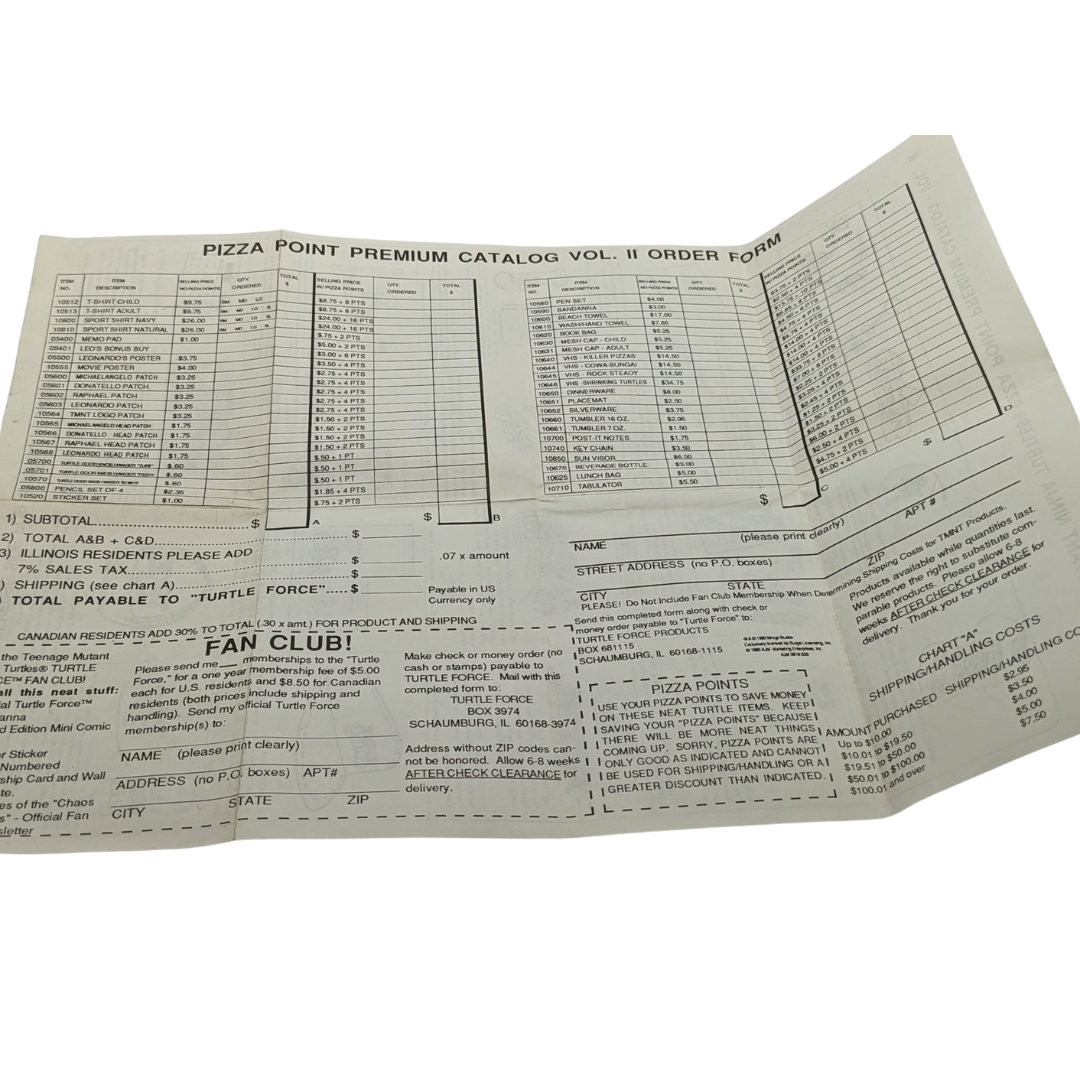 PIZZA POINT PREMIUM CATALOG VOL. II ORDER FORM
ITEM NO. ITEM DESCRIPTION SELLING PRICE NO PIZZA POINTS QTY. ORDERED TOTAL $ SELLING PRICE W/ PIZZA POINTS QTY. ORDERED TOTAL $
10512 T-SHIRT CHILD $9.75 SM MD LG $8.75 + 8 PTS
10513 T-SHIRT ADULT $9.75 SM MD LG XL $8.75 + 8 PTS
10800 SPORT SHIRT NAVY $26.00 SM MD LG XL $24.00 + 16 PTS
10810 SPORT SHIRT NATURAL $26.00 SM MD LG XL $24.00 + 16 PTS
05400 MEMO PAD $1.00 $.75 + 2 PTS
05401 LEO'S BONUS BUY $5.00 + 2 PTS
05500 LEONARDO'S POSTER $3.75 $3.00 + 6 PTS
10555 MOVIE POSTER $4.00 $3.50 + 4 PTS
05600 MICHAELANGELO PATCH $3.25 $2.75 + 4 PTS
05601 DONATELLO PATCH $3.25 $2.75 + 4 PTS
05602 RAPHAEL PATCH $3.25 $2.75 + 4 PTS
05603 LEONARDO PATCH $3.25 $2.75 + 4 PTS
10564 TMNT LOGO PATCH $3.25 $2.75 + 4 PTS
10565 MICHAELANGELO HEAD PATCH $1.75 $1.50 + 2 PTS
10566 DONATELLO HEAD PATCH $1.75 $1.50 + 2 PTS
10567 RAPHAEL HEAD PATCH $1.75 $1.50 + 2 PTS
10568 LEONARDO HEAD PATCH $1.75 $1.50 + 2 PTS
05700 TURTLE DOOR KNOB HANGER "SURF" $.60 $.50 + 1 PT
05701 TURTLE DOOR KNOB HANGER "PIZZA" $.60 $.50 + 1 PT
10570 TURTLE DOOR KNOB HANGER $.60 $.50 + 1 PT
05800 PENCIL SET OF 4 $2.35 $1.85 + 4 PTS
10520 STICKER SET $1.00 $.75 + 2 PTS
$ A $ B
ITEM NO. ITEM DESCRIPTION SELLING PRICE NO PIZZA POINTS QTY. ORDERED TOTAL $ SELLING PRICE W/ PIZZA POINTS QTY. ORDERED TOTAL $
10580 PEN SET $4.00 $3.75 + 2 PTS
10590 BANDANNA $3.00
10600 BEACH TOWEL $17.00
10610 WASH/HAND TOWEL $7.85
10620 BOOK BAG $5.25
10630 MESH CAP - CHILD $5.25
10631 MESH CAP - ADULT $5.25
10640 VHS - KILLER PIZZAS $14.50
10644 VHS - COWA-BUNGA! $14.50
10645 VHS - ROCK STEADY $14.50
10646 VHS - SHRINKING TURTLES $34.75
10650 DINNERWARE $8.00
10651 PLACEMAT $2.50
10652 SILVERWARE $3.75
10660 TUMBLER 16 OZ. $2.95
10661 TUMBLER 7 OZ. $1.50
10700 POST-IT NOTES $1.75
10740 KEY CHAIN $3.50
10850 SUN VISOR $6.50
10670 BEVERAGE BOTTLE $3.00
10625 LUNCH BAG $5.00
10710 TABULATOR $5.50
$7.00 + 8 PTS
$2.25 + 2 PTS
$3.25 + 4 PTS
$2.45 + 4 PTS
$1.25 + 2 PTS
$1.50 + 2 PTS
$3.25 + 2 PTS
$6.00 + 2 PTS
$2.50 + 4 PTS
$4.75 + 2 PTS
$5.00 + 4 PTS
$ C $ D
1) SUBTOTAL
2) TOTAL A&B + C&D $
3) ILLINOIS RESIDENTS PLEASE ADD
7% SALES TAX $ .07 x amount
) SHIPPING (see chart A) $
TOTAL PAYABLE TO "TURTLE FORCE" $ Payable in US
Currency only
CANADIAN RESIDENTS ADD 30% TO TOTAL (.30 x amt.) FOR PRODUCT AND SHIPPING
NAME (please print clearly)
STREET ADDRESS (no P.O. boxes) APT #
CITY STATE ZIP
PLEASE! Do Not Include Fan Club Membership When Determining Shipping Costs for TMNT Products.
Send this completed form along with check or
money order payable to "Turtle Force" to:
TURTLE FORCE PRODUCTS
BOX 681115
SCHAUMBURG, IL 60168-1115
Products available while quantities last.
We reserve the right to substitute com-
parable products. Please allow 6-8
weeks AFTER CHECK CLEARANCE for
delivery. Thank you for your order.
FAN CLUB!
the Teenage Mutant
Turtles® TURTLE
CE™ FAN CLUB!
all this neat stuff:
ial Turtle Force™
anna
d Edition Mini Comic
r Sticker
Numbered
ship Card and Wall
te.
es of the "Chaos
s" - Official Fan
sletter
Please send me ___ memberships to the "Turtle
Force," for a one year membership fee of $5.00
each for U.S. residents and $8.50 for Canadian
residents (both prices include shipping and
handling). Send my official Turtle Force
membership(s) to:
NAME (please print clearly)
ADDRESS (no P.O. boxes) APT#
CITY STATE ZIP
Make check or money order (no
cash or stamps) payable to
TURTLE FORCE. Mail with this
completed form to:
TURTLE FORCE
BOX 3974
SCHAUMBURG, IL 60168-3974
Address without ZIP codes can-
not be honored. Allow 6-8 weeks
AFTER CHECK CLEARANCE for
delivery.
PIZZA POINTS
USE YOUR PIZZA POINTS TO SAVE MONEY
ON THESE NEAT TURTLE ITEMS. KEEP
SAVING YOUR "PIZZA POINTS" BECAUSE
THERE WILL BE MORE NEAT THINGS
COMING UP. SORRY, PIZZA POINTS ARE
ONLY GOOD AS INDICATED AND CANNOT
BE USED FOR SHIPPING/HANDLING OR A
GREATER DISCOUNT THAN INDICATED.
CHART "A"
SHIPPING/HANDLING COSTS
AMOUNT PURCHASED SHIPPING/HANDLING CO
Up to $10.00 $2.95
$10.01 to $19.50 $3.50
$19.51 to $50.00 $4.00
$50.01 to $100.00 $5.00
$100.01 and over $7.50